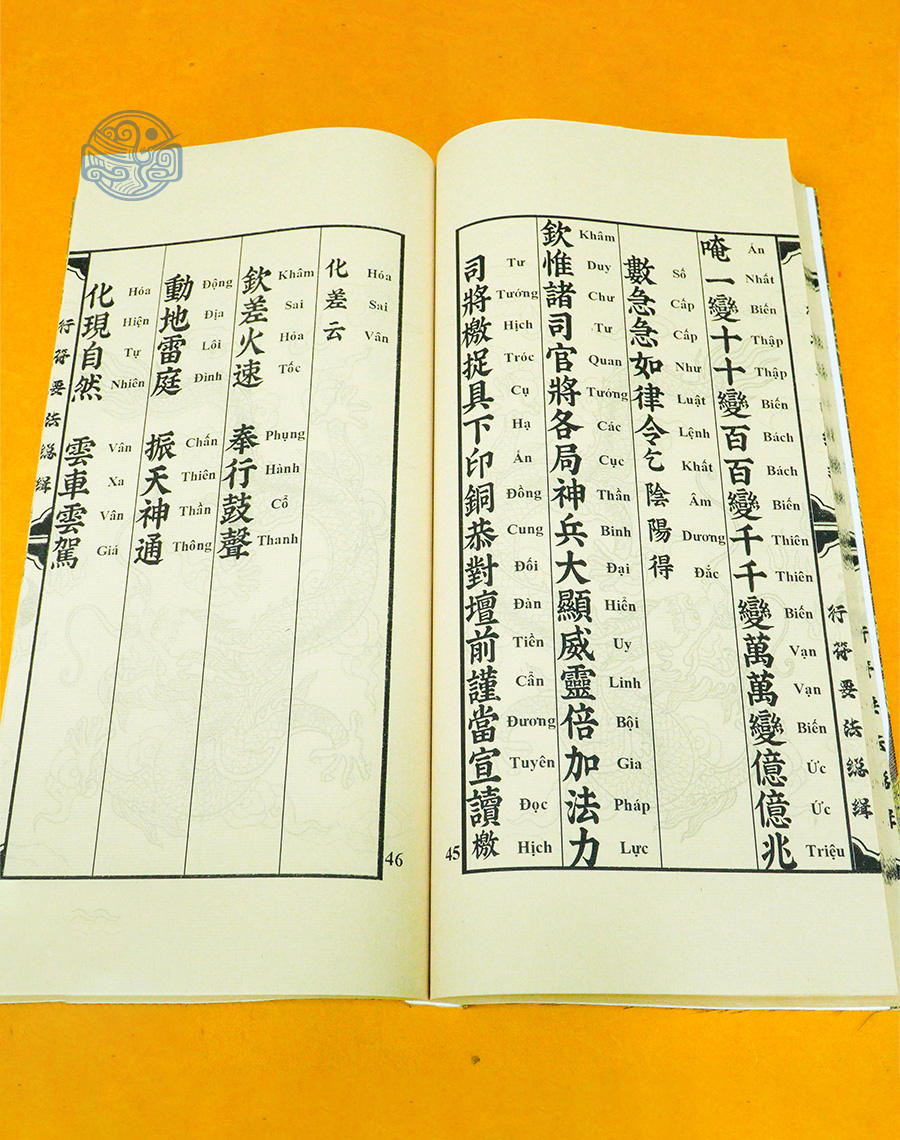 行符要法總緝
唵一變十十變百百變千千變萬萬變億億兆
Án Nhất Biến Thập Thập Biến Bách Bách Biến Thiên Thiên Biến Vạn Vạn Biến Ức Ức Triệu
數急急如律令乞陰陽得
Số Cấp Cấp Như Luật Lệnh Khất Âm Dương Đắc
欽惟諸司官將各局神兵大顯威靈倍加法力
Khâm Duy Chư Tư Quan Tướng Các Cục Thần Binh Đại Hiển Uy Linh Bội Gia Pháp Lực
司將檄捉具下印銅恭對壇前謹當宣讀檄
Tư Tướng Hịch Tróc Cụ Hạ Án Đồng Cung Đối Đàn Tiền Cẩn Đương Tuyên Đọc Hịch
45
化差云
Hóa Sai Vân
欽差火速 奉行鼓聲
Khâm Sai Hỏa Tốc Phụng Hành Cổ Thanh
動地雷庭 振天神通
Động Địa Lôi Đình Chấn Thiên Thần Thông
化現自然 雲車雲駕
Hóa Hiện Tự Nhiên Vân Xa Vân Giá
行符要法總緝
46